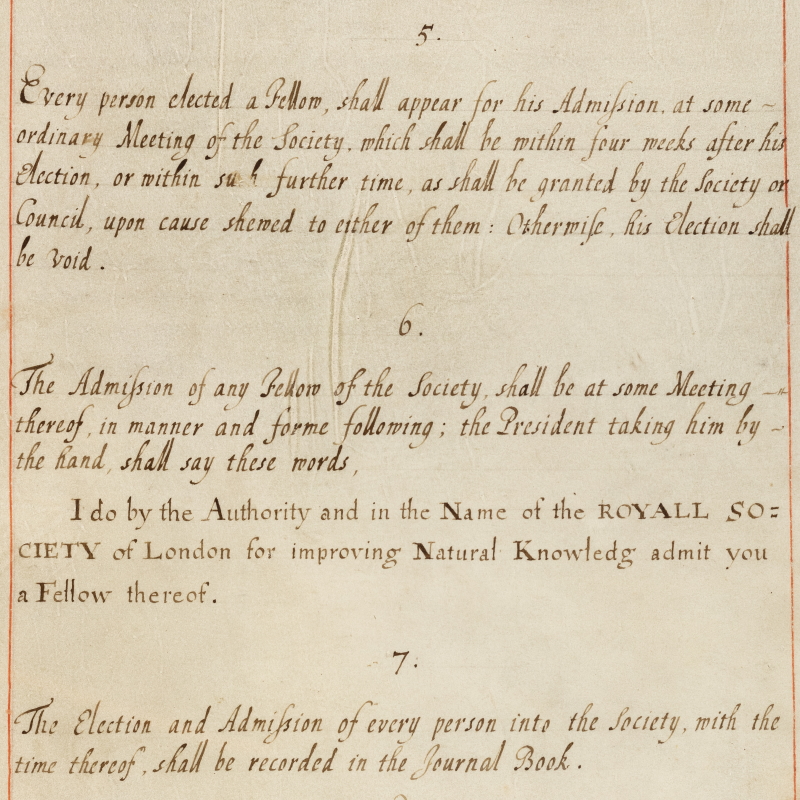 5.
Every person elected a Fellow, shall appear for his Admiſsion. at some ~
ordinary Meeting of the Society. which shall be within four weeks after his
Election, or within such further time, as shall be granted by the Society or
Council, upon cause shewed to either of them : Otherwiſe, his Election shall
be void.
6.
The Admiſsion of any Fellow of the Society, shall be at some Meeting —
thereof, in manner and forme following; the President taking him by ~
the hand, shall say these words,
I do by the Authority and in the Name of the ROYALL SO=
CIETY of London for improving Natural Knowledg admit you
a Fellow thereof.
7.
The Election and Admiſsion of every person into the Society, with the
time thereof, shall be recorded in the Journal Book.